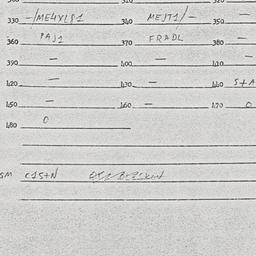 330 -/ME4YLS1 340 MEJT1/- 350 -
360 PAJ1 370 FRADL 380 -
390 - 400 - 410 -
420 - 430 - 440 S+A
450 - 460 - 470 0
480 0
SM C15+N